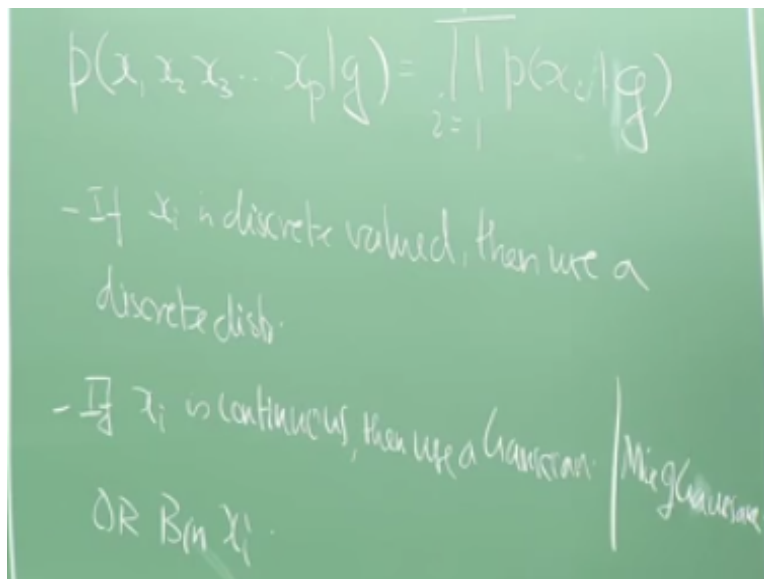 p(x₁ x₂ x₃ ... xₚ|g) = ∏ᵢ₌₁ p(xᵢ|g)
- If xᵢ is discrete valued, then use a
discrete distr.
- If xᵢ is continuous, then use a Gaussian | Mix g Gaussians
OR Bin xᵢ.